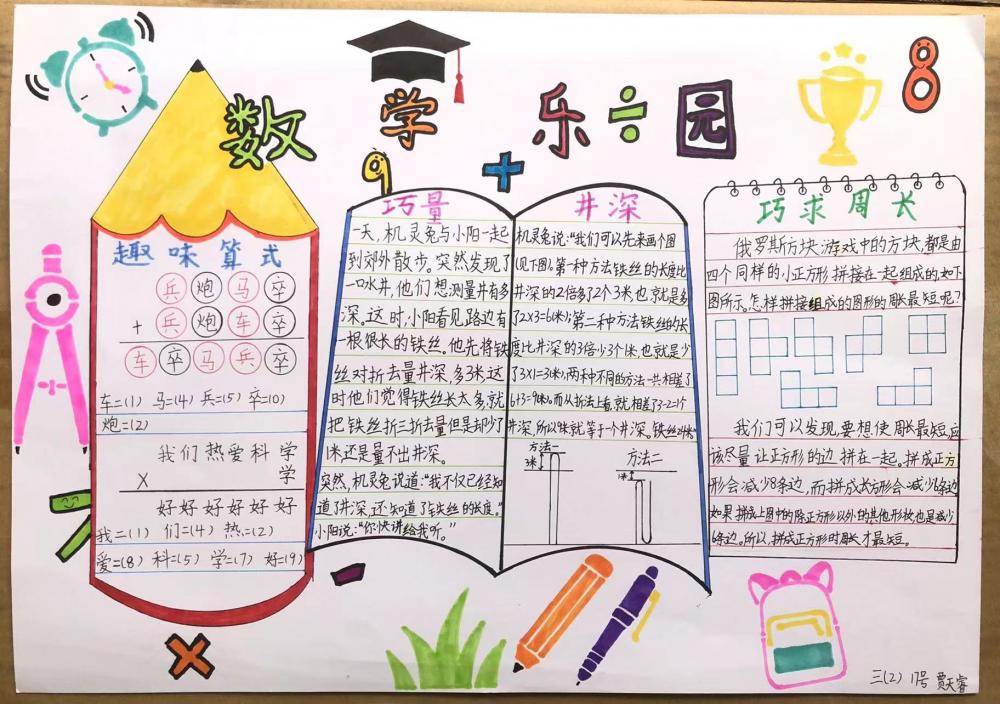 数学乐÷园
8
9
+
趣味算式
兵炮马卒
+兵炮车卒
车卒马兵卒
车=(1) 马=(4) 兵=(5) 卒=(0)
炮=(2)
我们热爱科学
× 学
好好好好好好
我=(1) 们=(4) 热=(2)
爱=(8) 科=(5) 学=(7) 好=(9)
×
巧量
一天,机灵兔与小阳一起
到郊外散步。突然发现了
一口水井,他们想测量井有多
深。这时,小阳看见路边有
一根很长的铁丝。他先将铁
丝对折去量井深,多3米,这
时他们觉得铁丝长太多,就
把铁丝折三折去量但是却少了
1米还是量不出井深。
突然,机灵兔说道:“我不仅已经知
道了井深,还知道了铁丝的长度。”
小阳说:“你快讲给我听。”
井深
机灵兔说:“我们可以先来画个图
(见下图),第一种方法铁丝的长度比
井深的2倍多了2个3米,也就是多
了2×3=6(米);第二种方法铁丝的长
度比井深的3倍少3个1米,也就是少
了3×1=3(米),两种不同的方法一共相差了
6+3=9(米)。而从折法上看,就相差了3-2=1个
井深,所以9米就等于一个井深。铁丝24米”
方法一
3米
方法二
1米
巧求周长
俄罗斯方块游戏中的方块,都是由
四个同样的小正方形拼接在一起组成的,如下
图所示。怎样拼接组成的图形的周长最短呢?
我们可以发现,要想使周长最短,应
该尽量让正方形的边拼在一起。拼成正方
形会减少8条边,而拼成长方形会减少6条边,
如果拼成上图中的除正方形以外的其他形状也是减少
6条边。所以,拼成正方形时周长才最短。
三(2) 17号 贾天睿